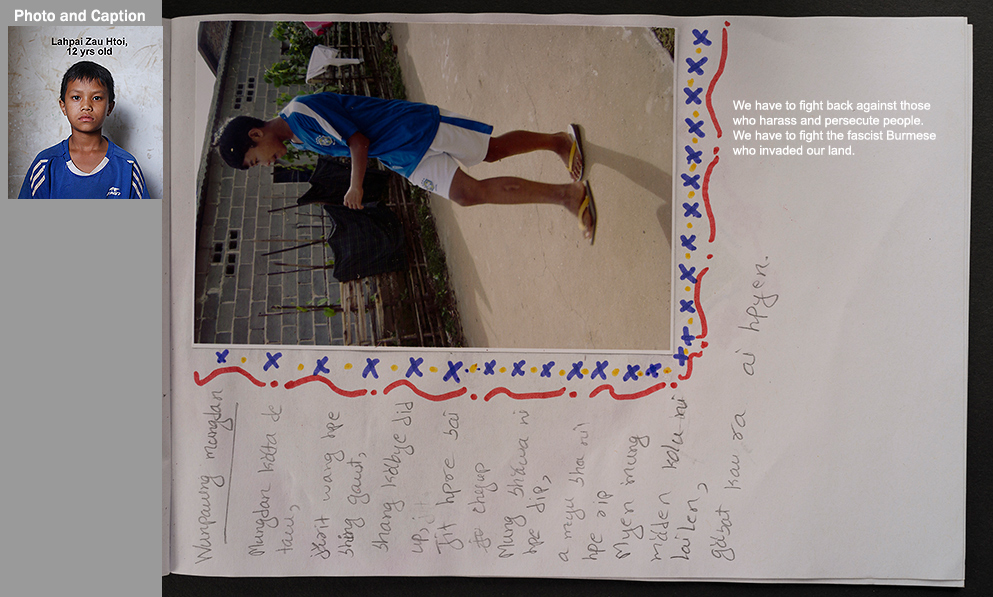 Photo and Caption
Lahpai Zau Htoi,
12 yrs old
We have to fight back against those
who harass and persecute people.
We have to fight the fascist Burmese
who invaded our land.
Wunpawng mungdan
Mungdan kata de
tau,
wang hpe
shing gaut,
shang kabye did
up,
Jit hpore sai
ju chyup
Mung shawa ni
hpe dip,
a myu sha ni
hpe rip
Myen mung
madden kolu ni
lai len,
gasat kau ra ai hpyen.